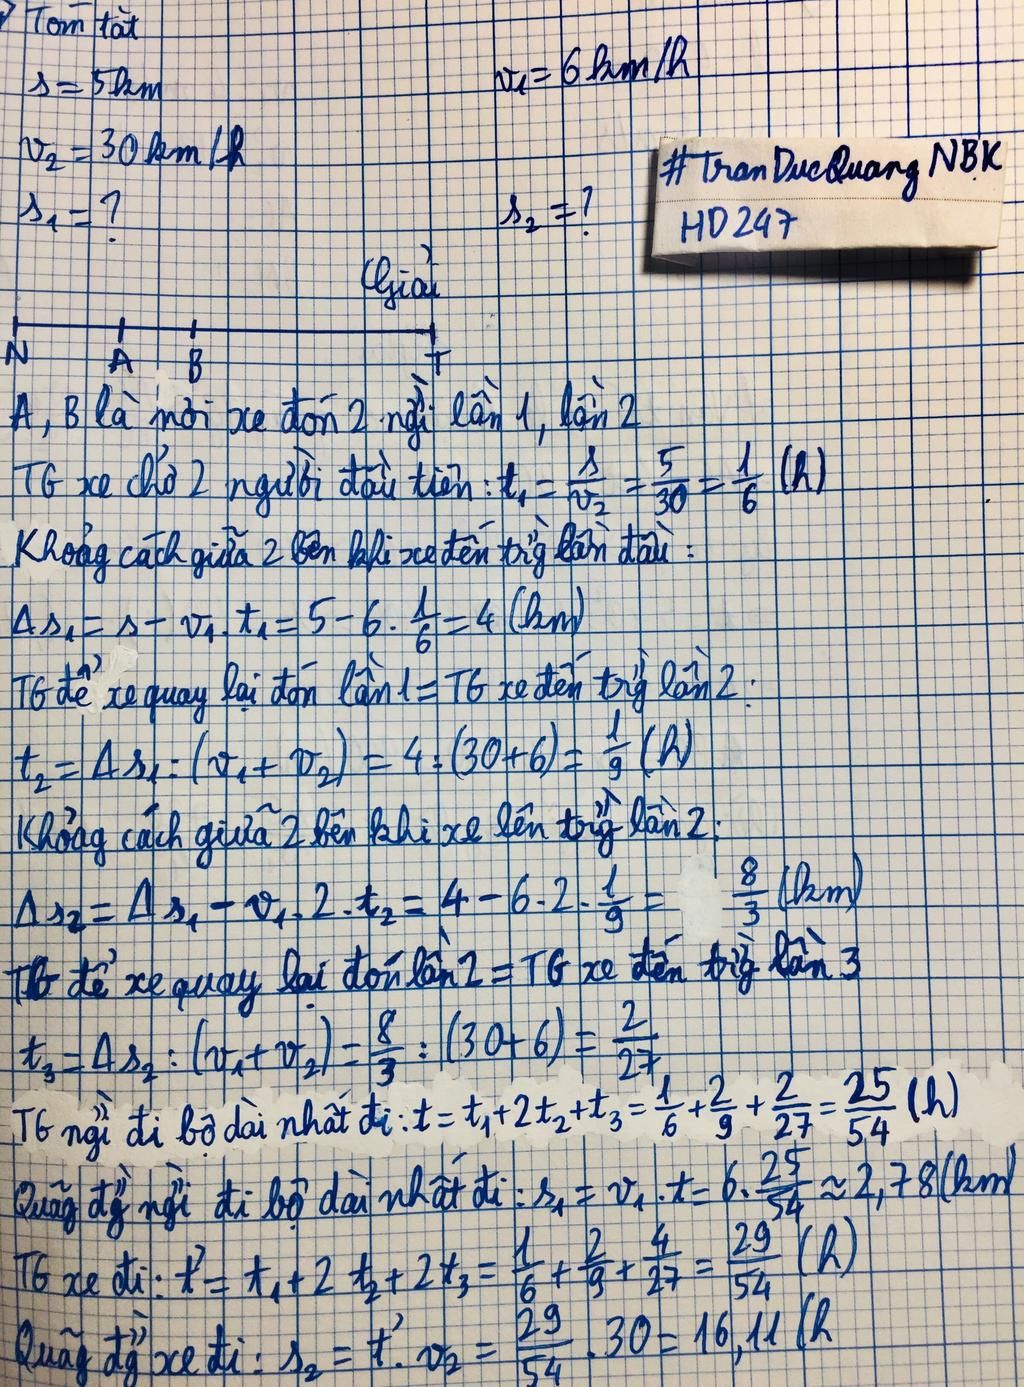 Tóm tắt
s = 5km
v₁ = 6km/h
v₂ = 30km/h
#TranDucQuangNBK
HD247
s₁ = ?
s₂ = ?
Giải
N A B T
A, B là nơi xe đón 2 ng` lần 1, lần 2
TG xe chở 2 người đầu tiên: t₁ = s/v₂ = 5/30 = 1/6 (h)
Khoảg cách giữa 2 bên khi xe đến trg` lần đầu:
Δs₁ = s - v₁.t₁ = 5 - 6.1/6 = 4 (km)
TG để xe quay lại đón lần 1 = TG xe đến trg` lần 2:
t₂ = Δs₁ : (v₁ + v₂) = 4 : (30+6) = 1/9 (h)
Khoảg cách giữa 2 bên khi xe lên trg` lần 2:
Δs₂ = Δs₁ - v₁.2.t₂ = 4 - 6.2.1/9 = 8/3 (km)
TG để xe quay lại đón lần 2 = TG xe đến trg` lần 3
t₃ = Δs₂ : (v₁ + v₂) = 8/3 : (30+6) = 2/27
TG ng` đi bộ dài nhất đi: t = t₁ + 2t₂ + t₃ = 1/6 + 2/9 + 2/27 = 25/54 (h)
Quãg đg` ng` đi bộ dài nhất đi: s₁ = v₁.t = 6.25/54 ≈ 2,78(km)
TG xe đi: t' = t₁ + 2t₂ + 2t₃ = 1/6 + 2/9 + 4/27 = 29/54 (h)
Quãg đg` xe đi: s₂ = t'.v₂ = 29/54.30 = 16,11 (h